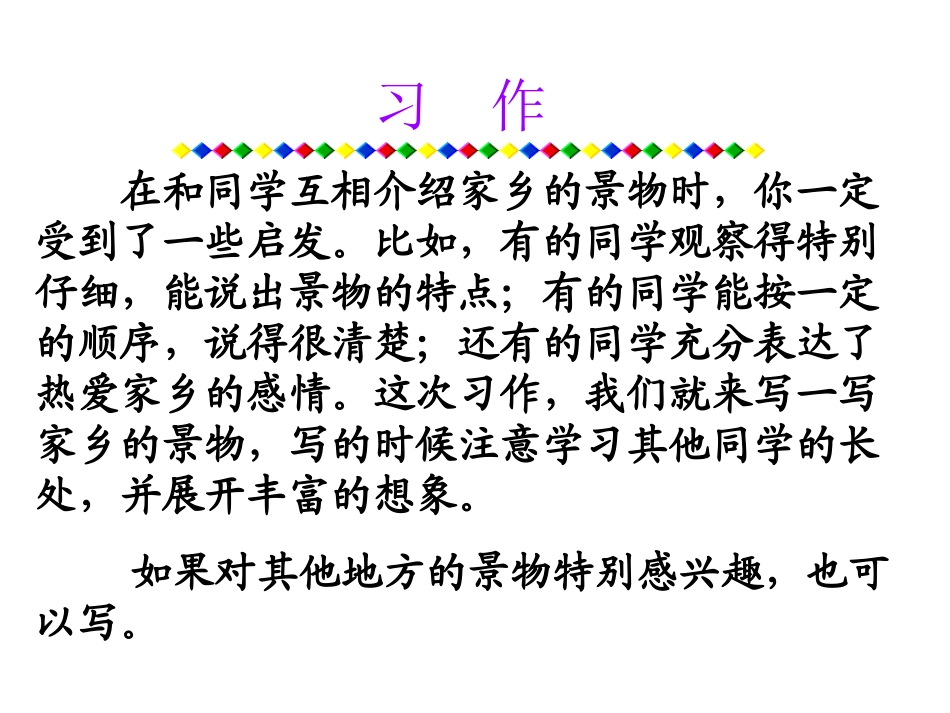 习 作
在和同学互相介绍家乡的景物时，你一定
受到了一些启发。比如，有的同学观察得特别
仔细，能说出景物的特点；有的同学能按一定
的顺序，说得很清楚；还有的同学充分表达了
热爱家乡的感情。这次习作，我们就来写一写
家乡的景物，写的时候注意学习其他同学的长
处，并展开丰富的想象。
如果对其他地方的景物特别感兴趣，也可
以写。